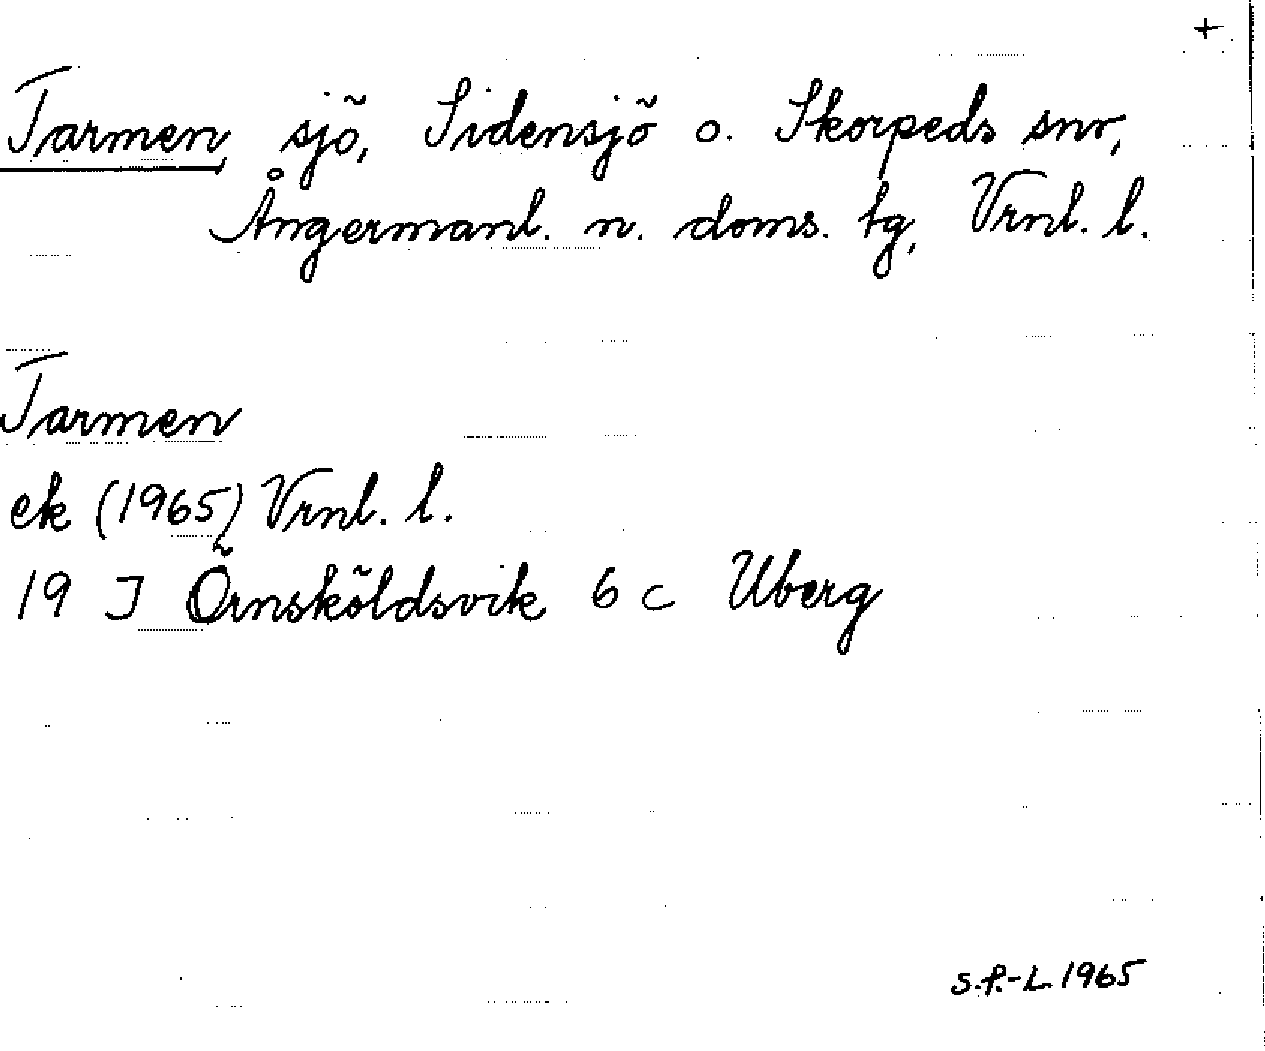 +
Tarmen, sjö, Sidensjö o. Skorpeds snr,
Ångermanl. n. doms. tg, Vrnl. l.
Tarmen
ek (1965) Vrnl. l.
19 J Örnsköldsvik 6 c Uberg
S.P.-L. 1965